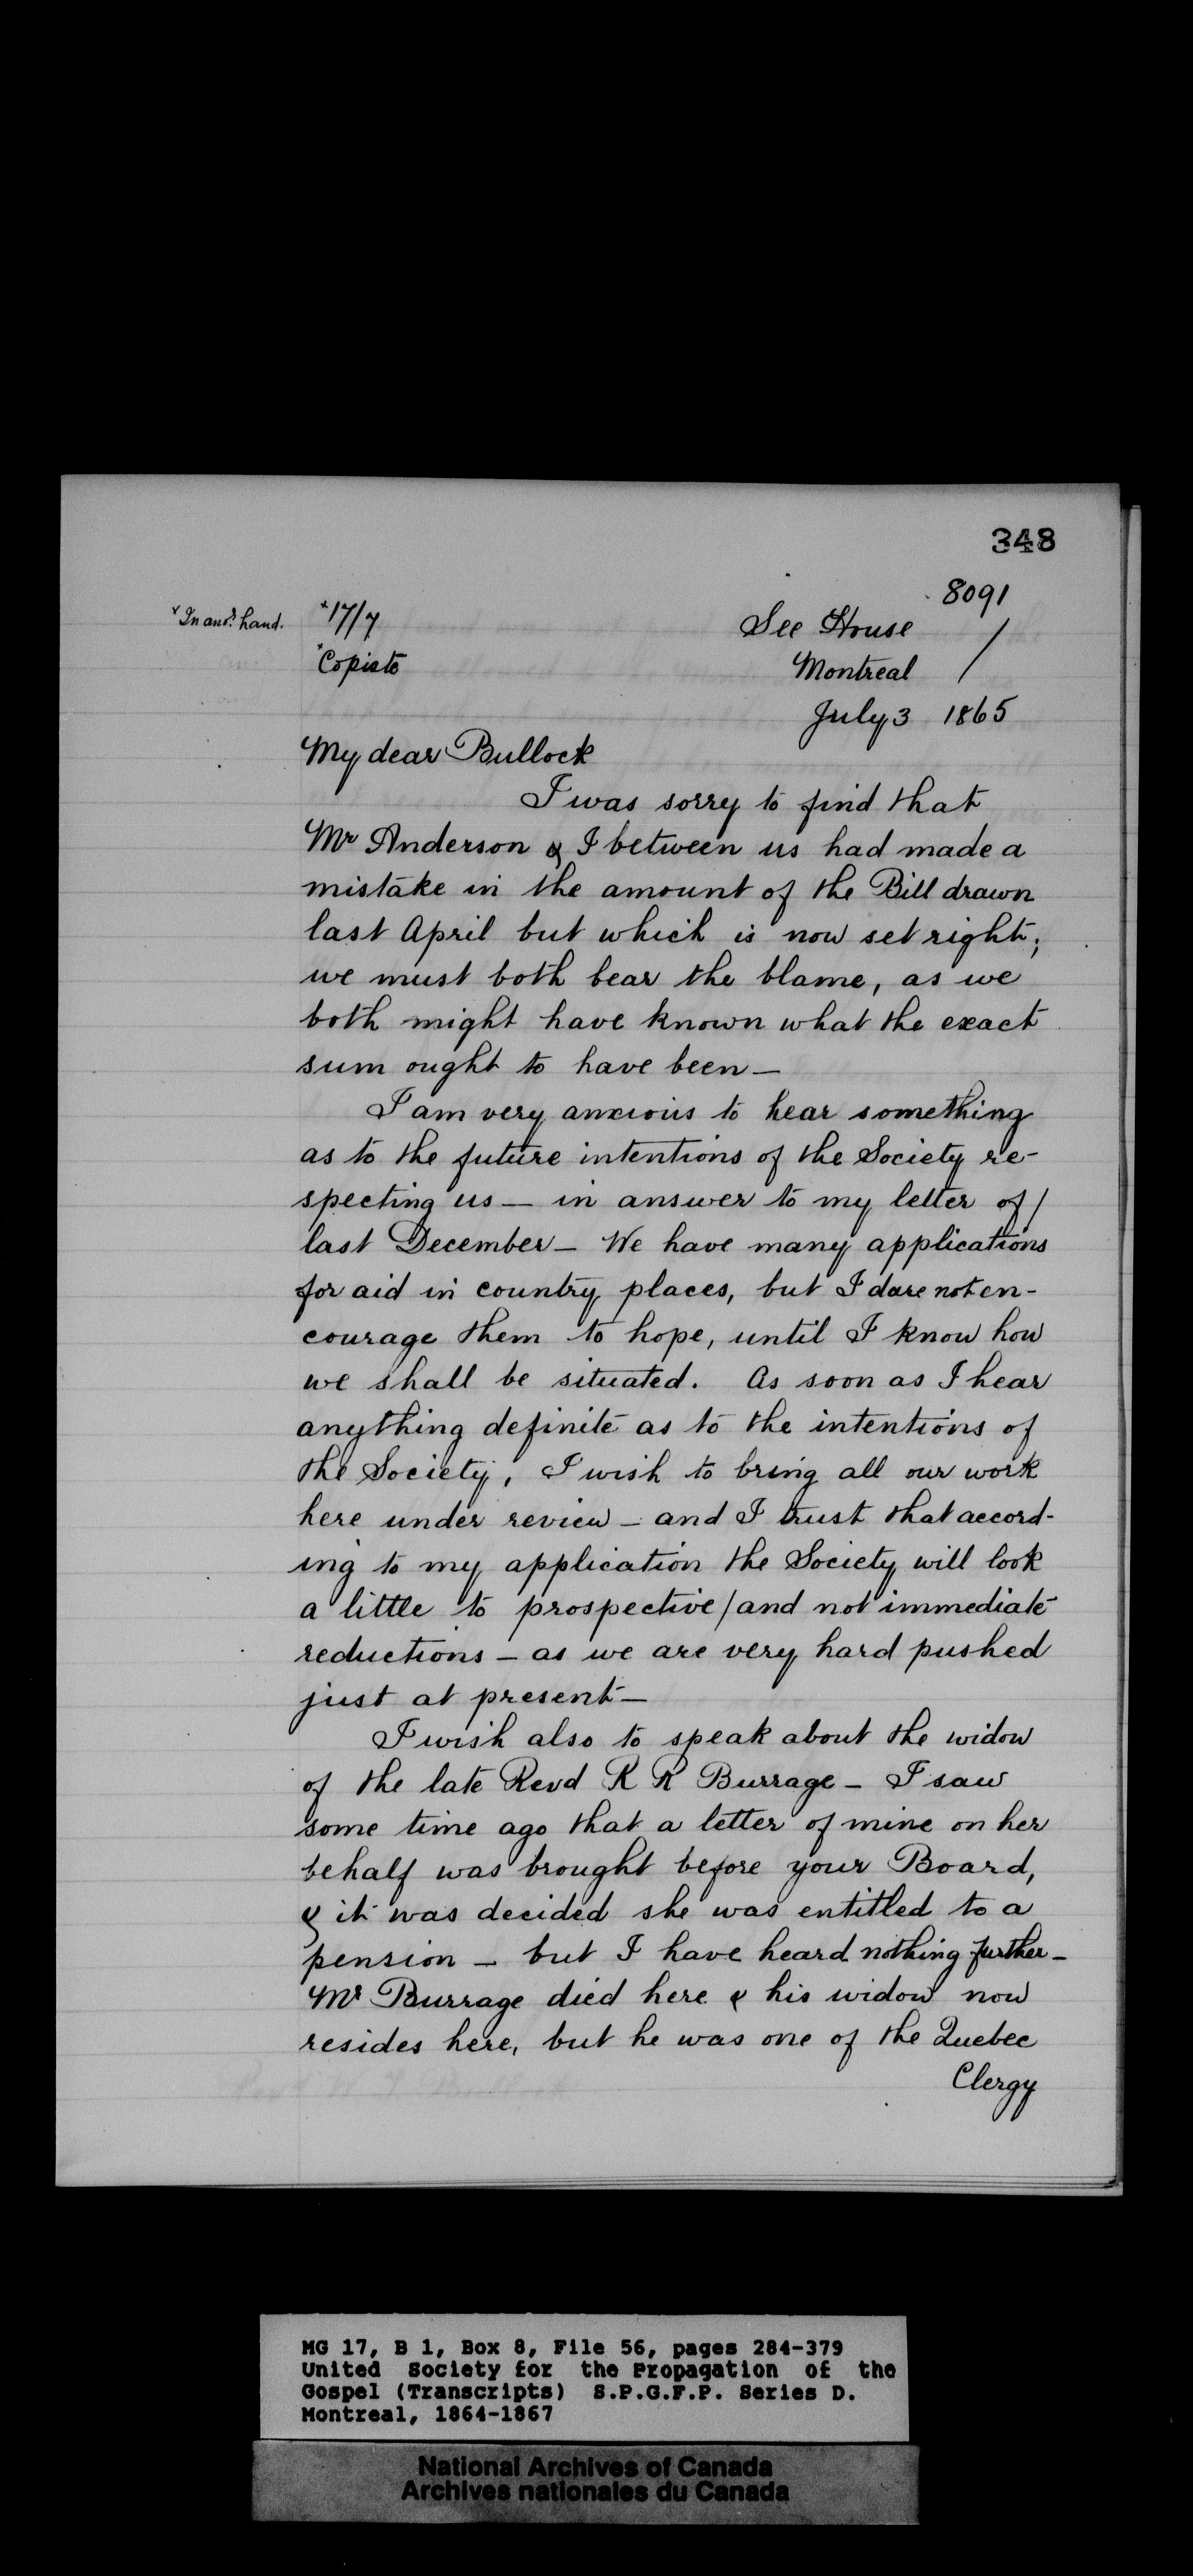 348
8091
ˣIn anoʳ. hand.
ˣ17/7
See House
/
ˣCopists
Montreal
July 3 1865
My dear Bullock
I was sorry to find that
Mr Anderson & I between us had made a
mistake in the amount of the Bill drawn
last April but which is now set right;
we must both bear the blame, as we
both might have known what the exact
sum ought to have been—
I am very anxious to hear something
as to the future intentions of the Society re-
specting us — in answer to my letter of/
last December — We have many applications
for aid in country places, but I dare not en-
courage them to hope, until I know how
we shall be situated. As soon as I hear
anything definite as to the intentions of
the Society, I wish to bring all our work
here under review — and I trust that accord-
ing to my application the Society will look
a little to prospective/and not immediate
reductions — as we are very hard pushed
just at present —
I wish also to speak about the widow
of the late Revd R R Burrage — I saw
some time ago that a letter of mine on her
behalf was brought before your Board,
& it was decided she was entitled to a
pension — but I have heard nothing further —
Mr Burrage died here & his widow now
resides here, but he was one of the Quebec
Clergy
MG 17, B 1, Box 8, File 56, pages 284-379
United Society for the Propagation of the
Gospel (Transcripts) S.P.G.F.P. Series D.
Montreal, 1864-1867
National Archives of Canada
Archives nationales du Canada